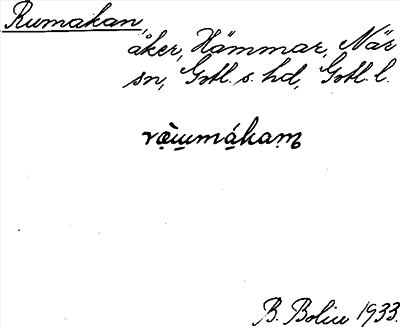 Rumakan,
åker, Hämmar, När
sn, Gotl. s. hd, Gotl. l.
B. Bolin 1933.